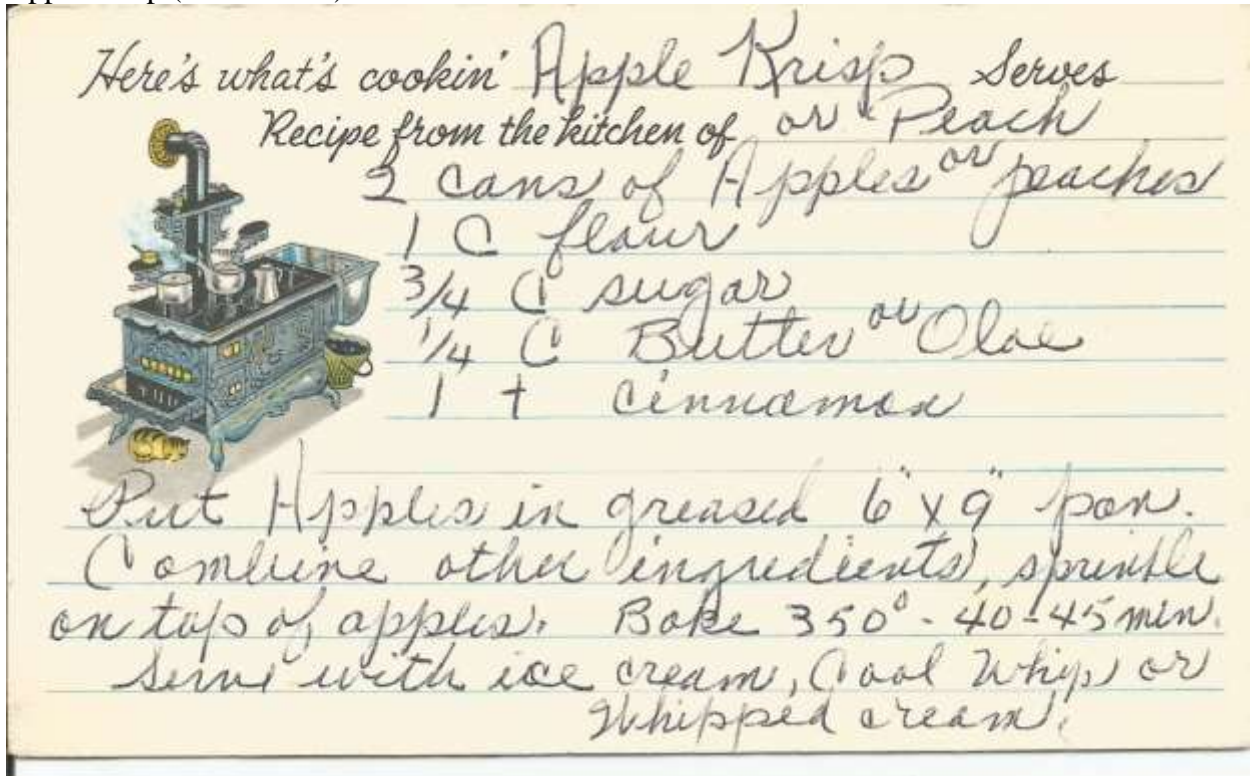 Here's what's cookin' Apple Krisp Serves
Recipe from the kitchen of or Peach
2 cans of Apples or peaches
1 C flour
3/4 C sugar
1/4 C Butter or Oloe
1 t cinnamon
Put Apples in greased 6" x 9" pan.
Combine other ingredients, sprinkle
on top of apples. Bake 350° - 40-45 min.
Serve with ice cream, Cool Whip or
Whipped cream.